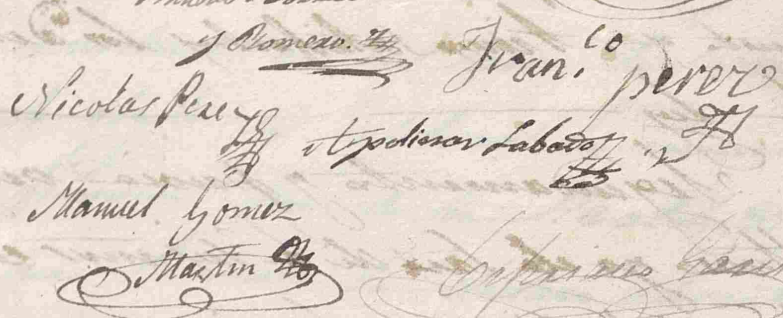 y Romero.
Fran.co perez
Nicolas Perez
Apolinar Labado
Manuel Gomez
Martin